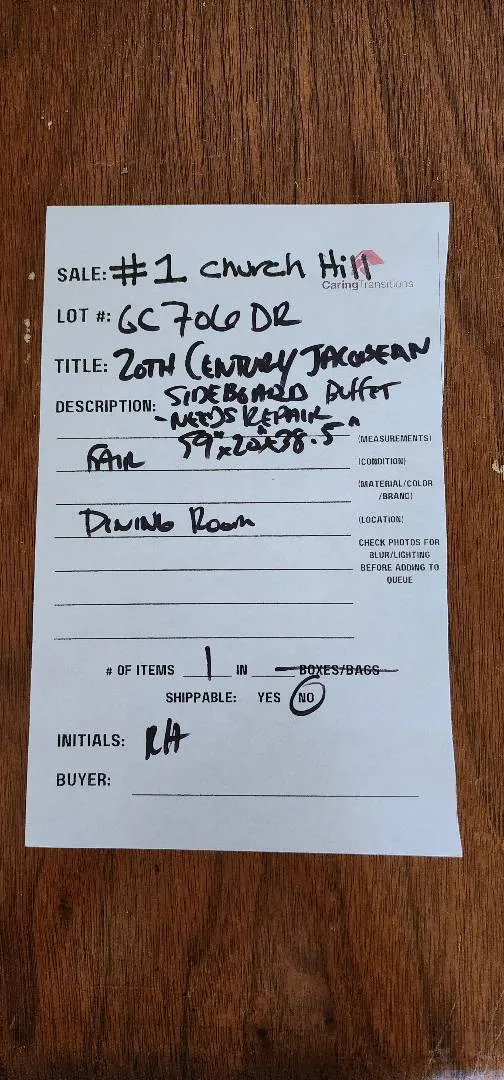 SALE: #1 Church Hill
CaringTransitions
LOT #: GC706DR
TITLE: 20TH CENTURY JACOBEAN
DESCRIPTION: SIDEBOARD BUFFET
- NEEDS REPAIR
59"x20"x38.5" (MEASUREMENTS)
FAIR (CONDITION)
(MATERIAL/COLOR
/BRAND)
DINING ROOM (LOCATION)
CHECK PHOTOS FOR
BLUR/LIGHTING
BEFORE ADDING TO
QUEUE
# OF ITEMS 1 IN BOXES/BAGS
SHIPPABLE: YES NO
INITIALS: RH
BUYER: